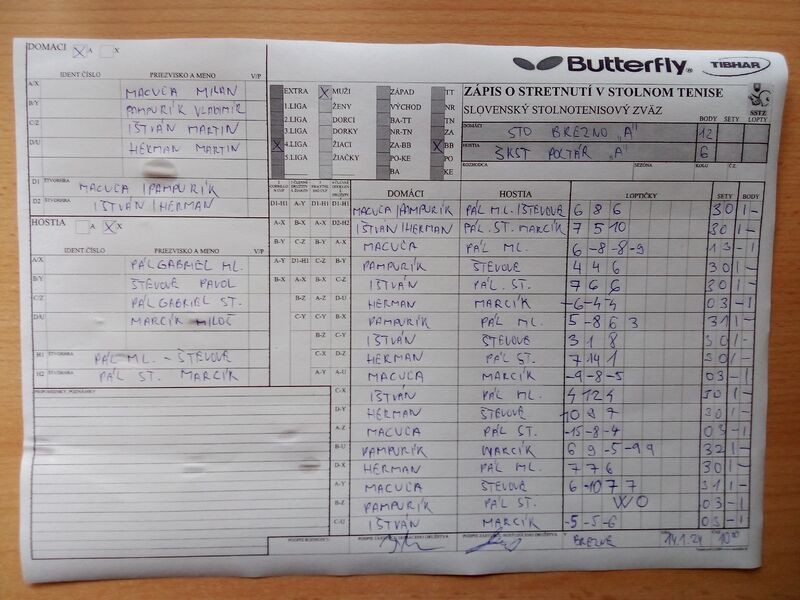 DOMÁCI X A X
Butterfly® TIBHAR
IDENT ČÍSLO PRIEZVISKO A MENO V/P
A/X MACUĽA MILAN
B/Y PAMPURÍK VLADIMÍR
C/Z IŠTVÁN MARTIN
D/U HERMAN MARTIN
D1 ŠTVORHRA MACUĽA / PAMPURÍK
D2 ŠTVORHRA IŠTVÁN / HERMAN
HOSTIA A X X
IDENT ČÍSLO PRIEZVISKO A MENO V/P
A/X PÁL GABRIEL ML.
B/Y ŠTEVOVE PAVOL
C/Z PÁL GABRIEL ST.
D/U MARCÍK MILOČ
H1 ŠTVORHRA PÁL ML. - ŠTEVOVE
H2 ŠTVORHRA PÁL ST. MARCÍK
PRIPOMIENKY, POZNÁMKY
EXTRA X MUŽI ZÁPAD TT
1.LIGA ŽENY VÝCHOD NR
2.LIGA DORCI BA-TT TN
3.LIGA DORKY NR-TN ZA
X 4.LIGA ŽIACI ZA-BB X BB
5.LIGA ŽIAČKY PO-KE PO
BA KE
ZÁPIS O STRETNUTÍ V STOLNOM TENISE
SLOVENSKÝ STOLNOTENISOVÝ ZVÄZ
SSTZ
BODY SETY LOPTY
DOMÁCI STO BREZNO "A" 12
HOSTIA ŠKST POLTÁR "A" 6
ROZHODCA SEZÓNA KOLO Č.Z.
DOMÁCI HOSTIA LOPTIČKY SETY BODY
D1-H1 A-Y D1-H1 D1-H1 MACUĽA / PAMPURÍK PÁL ML. / ŠTEVOVE 6 8 6 3 0 1 -
A-X B-X A-X D2-H2 IŠTVAN / HERMAN PÁL ST. MARCÍK 7 5 10 3 0 1 -
B-Y C-Z B-Y A-X MACUĽA PÁL ML. 6 -8 -8 -9 1 3 - 1
A-Y D1-H1 C-Z B-Y PAMPURÍK ŠTEVOVE 4 4 6 3 0 1 -
B-X A-X B-X C-Z IŠTVÁN PÁL ST. 7 6 6 3 0 1 -
B-Z A-Z D-U HERMAN MARCÍK -6 -4 -4 0 3 - 1
C-Y C-Y B-X PAMPURÍK PÁL ML. 5 -8 6 3 3 1 1 -
B-Z C-Y IŠTVÁN ŠTEVOVE 3 1 8 3 0 1 -
C-X D-Z HERMAN PÁL ST. 7 14 1 3 0 1 -
A-Y A-U MACUĽA MARCÍK -9 -8 -5 0 3 - 1
C-X IŠTVÁN PÁL ML. 4 12 4 3 0 1 -
D-Y HERMAN ŠTEVOVE 10 9 7 3 0 1 -
A-Z MACUĽA PÁL ST. -15 -8 -4 0 3 - 1
B-U PAMPURÍK MARCÍK 6 9 -5 -9 9 3 2 1 -
D-X HERMAN PÁL ML. 7 7 6 3 0 1 -
A-Y MACUĽA ŠTEVOVE 6 -10 7 7 3 1 1 -
B-Z PAMPURÍK PÁL ST. WO 0 3 - 1
C-U IŠTVÁN MARCÍK -5 -5 -6 0 3 - 1
BREZNE 14.1.24 10⁰⁰